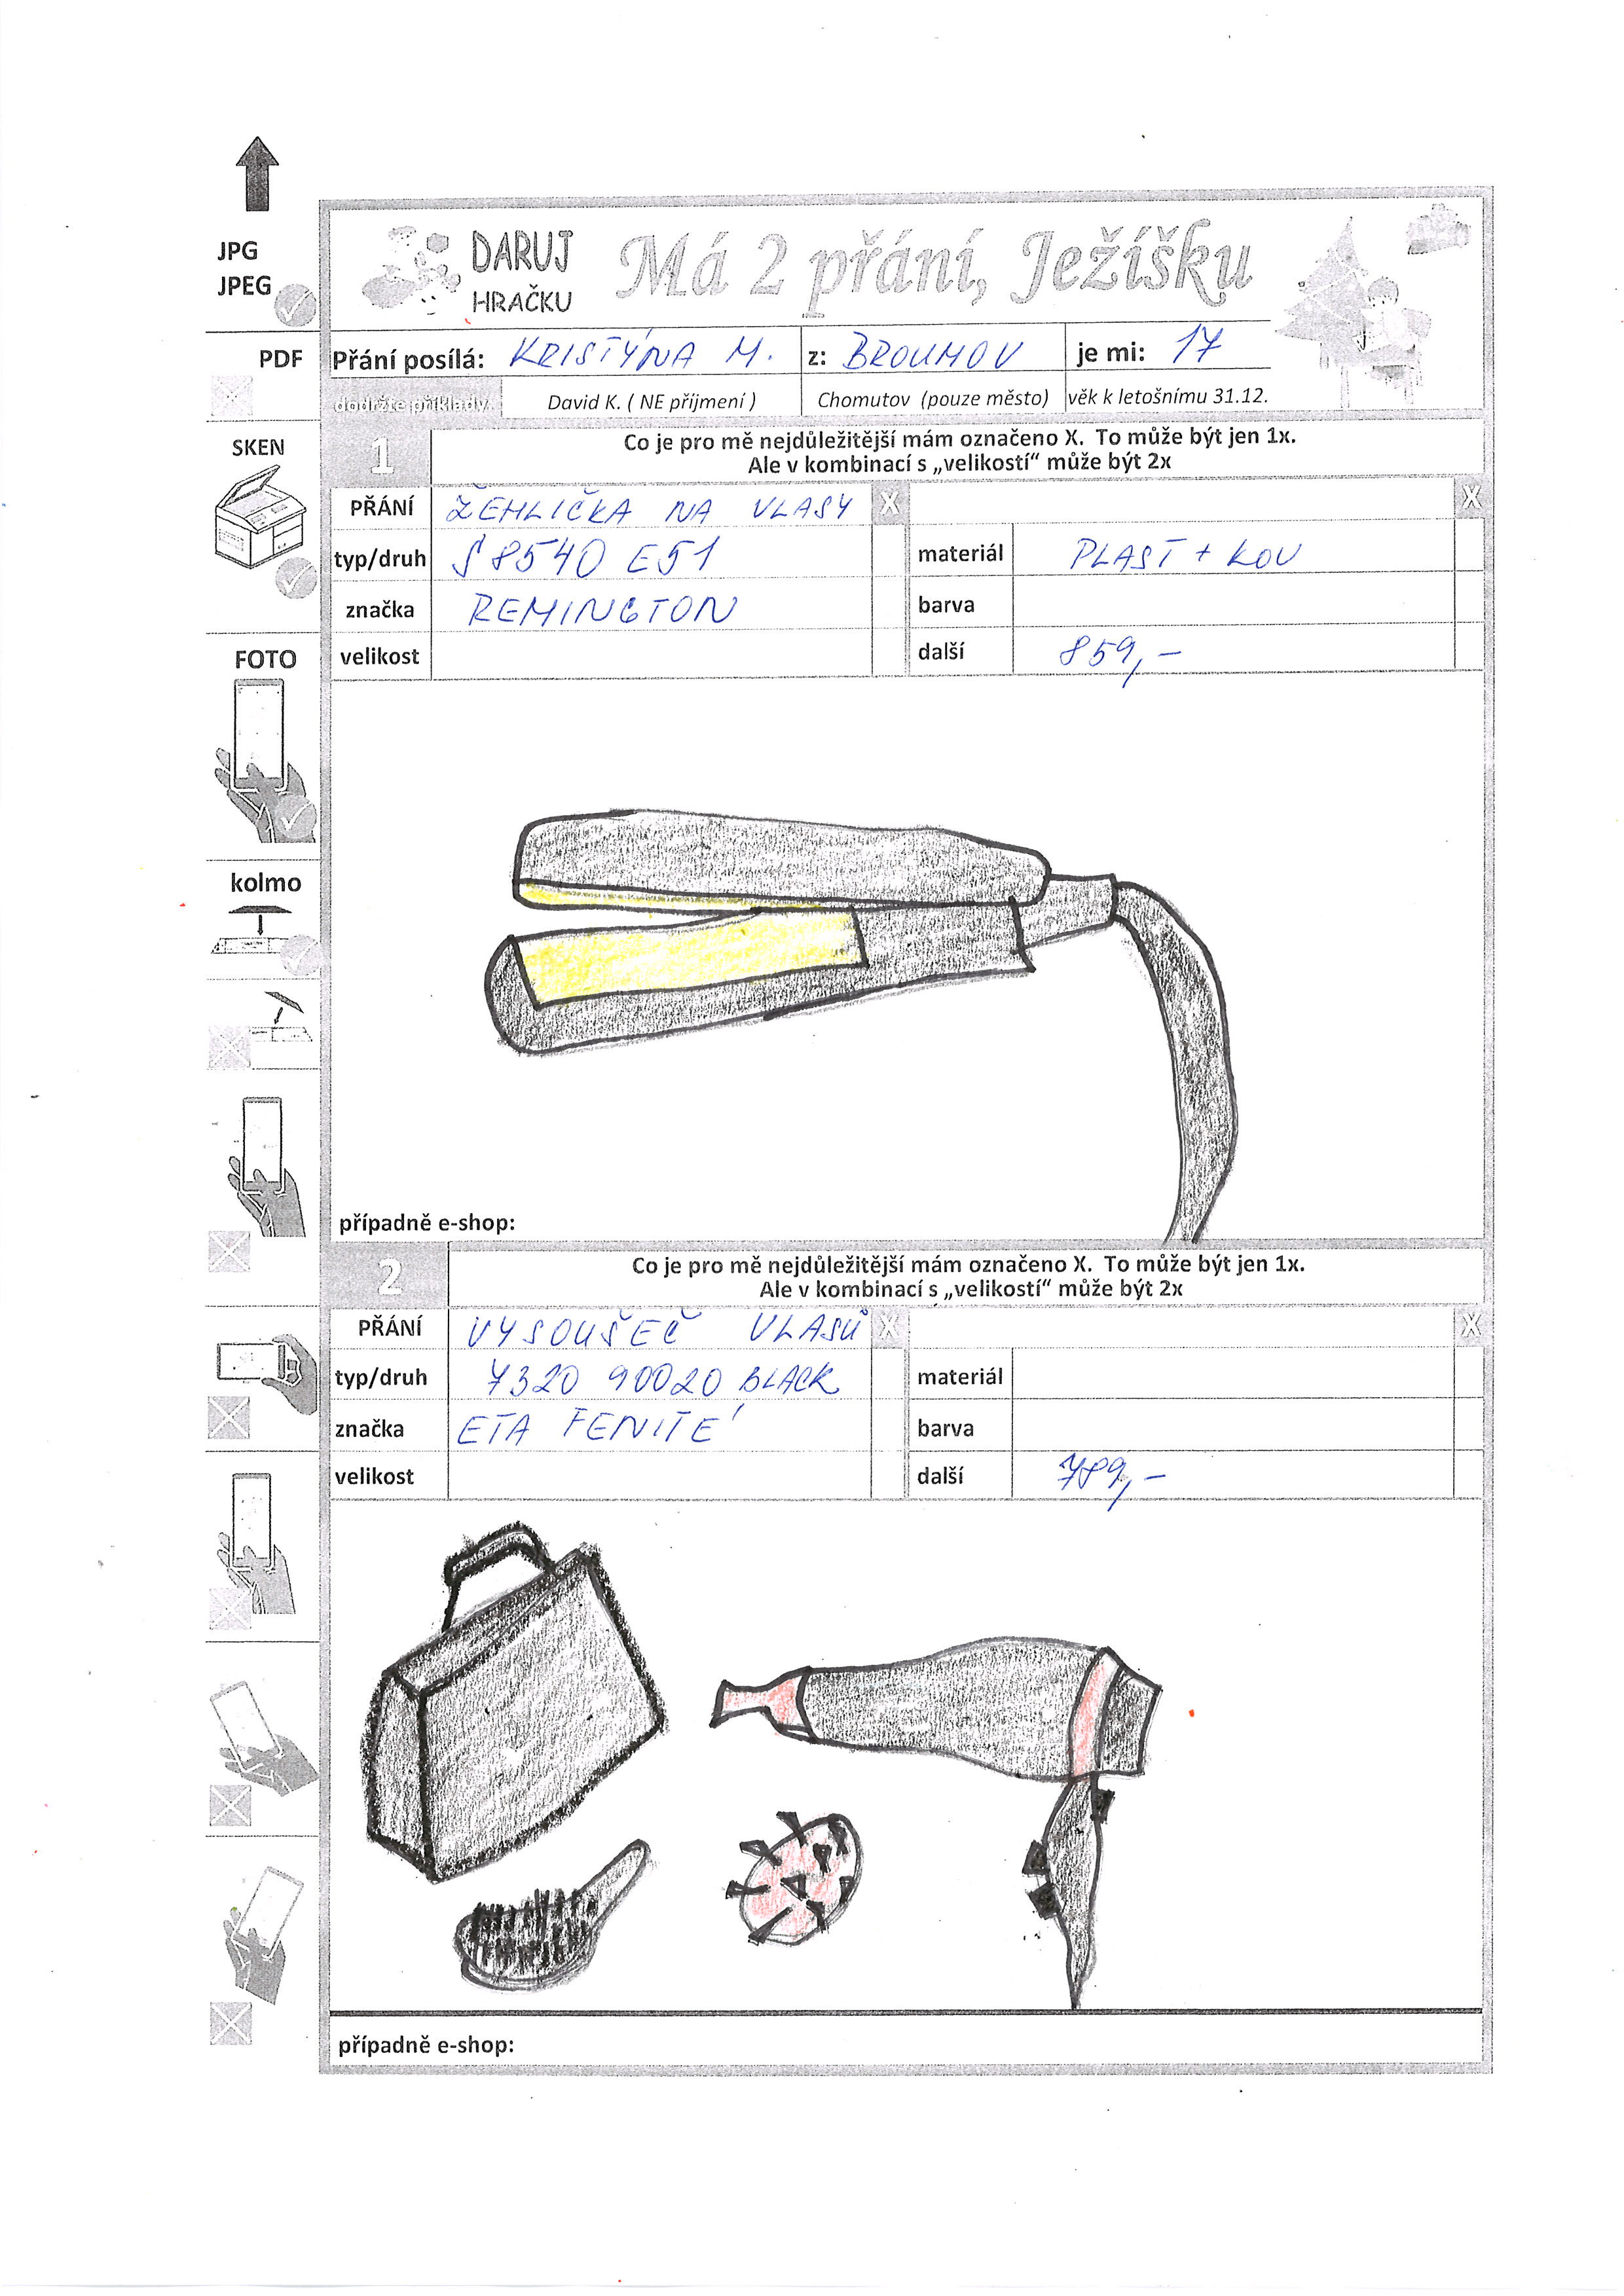 JPG
JPEG
PDF
SKEN
FOTO
kolmo
DARUJ
HRAČKU
Má 2 přání, Ježíšku
Přání posílá: KRISTÝNA M. z: BROUMOV je mi: 17
dodržte příklady David K. ( NE příjmení ) Chomutov (pouze město) věk k letošnímu 31.12.
1 Co je pro mě nejdůležitější mám označeno X. To může být jen 1x.
Ale v kombinací s „velikostí“ může být 2x
PŘÁNÍ ŽEHLIČKA NA VLASY X X
typ/druh S8540 E51 materiál PLAST + KOV
značka REMINGTON barva
velikost další 859,-
případně e-shop:
2 Co je pro mě nejdůležitější mám označeno X. To může být jen 1x.
Ale v kombinací s „velikostí“ může být 2x
PŘÁNÍ VYSOUŠEČ VLASŮ X X
typ/druh 7320 90020 BLACK materiál
značka ETA FENITÉ barva
velikost další 789,-
případně e-shop: